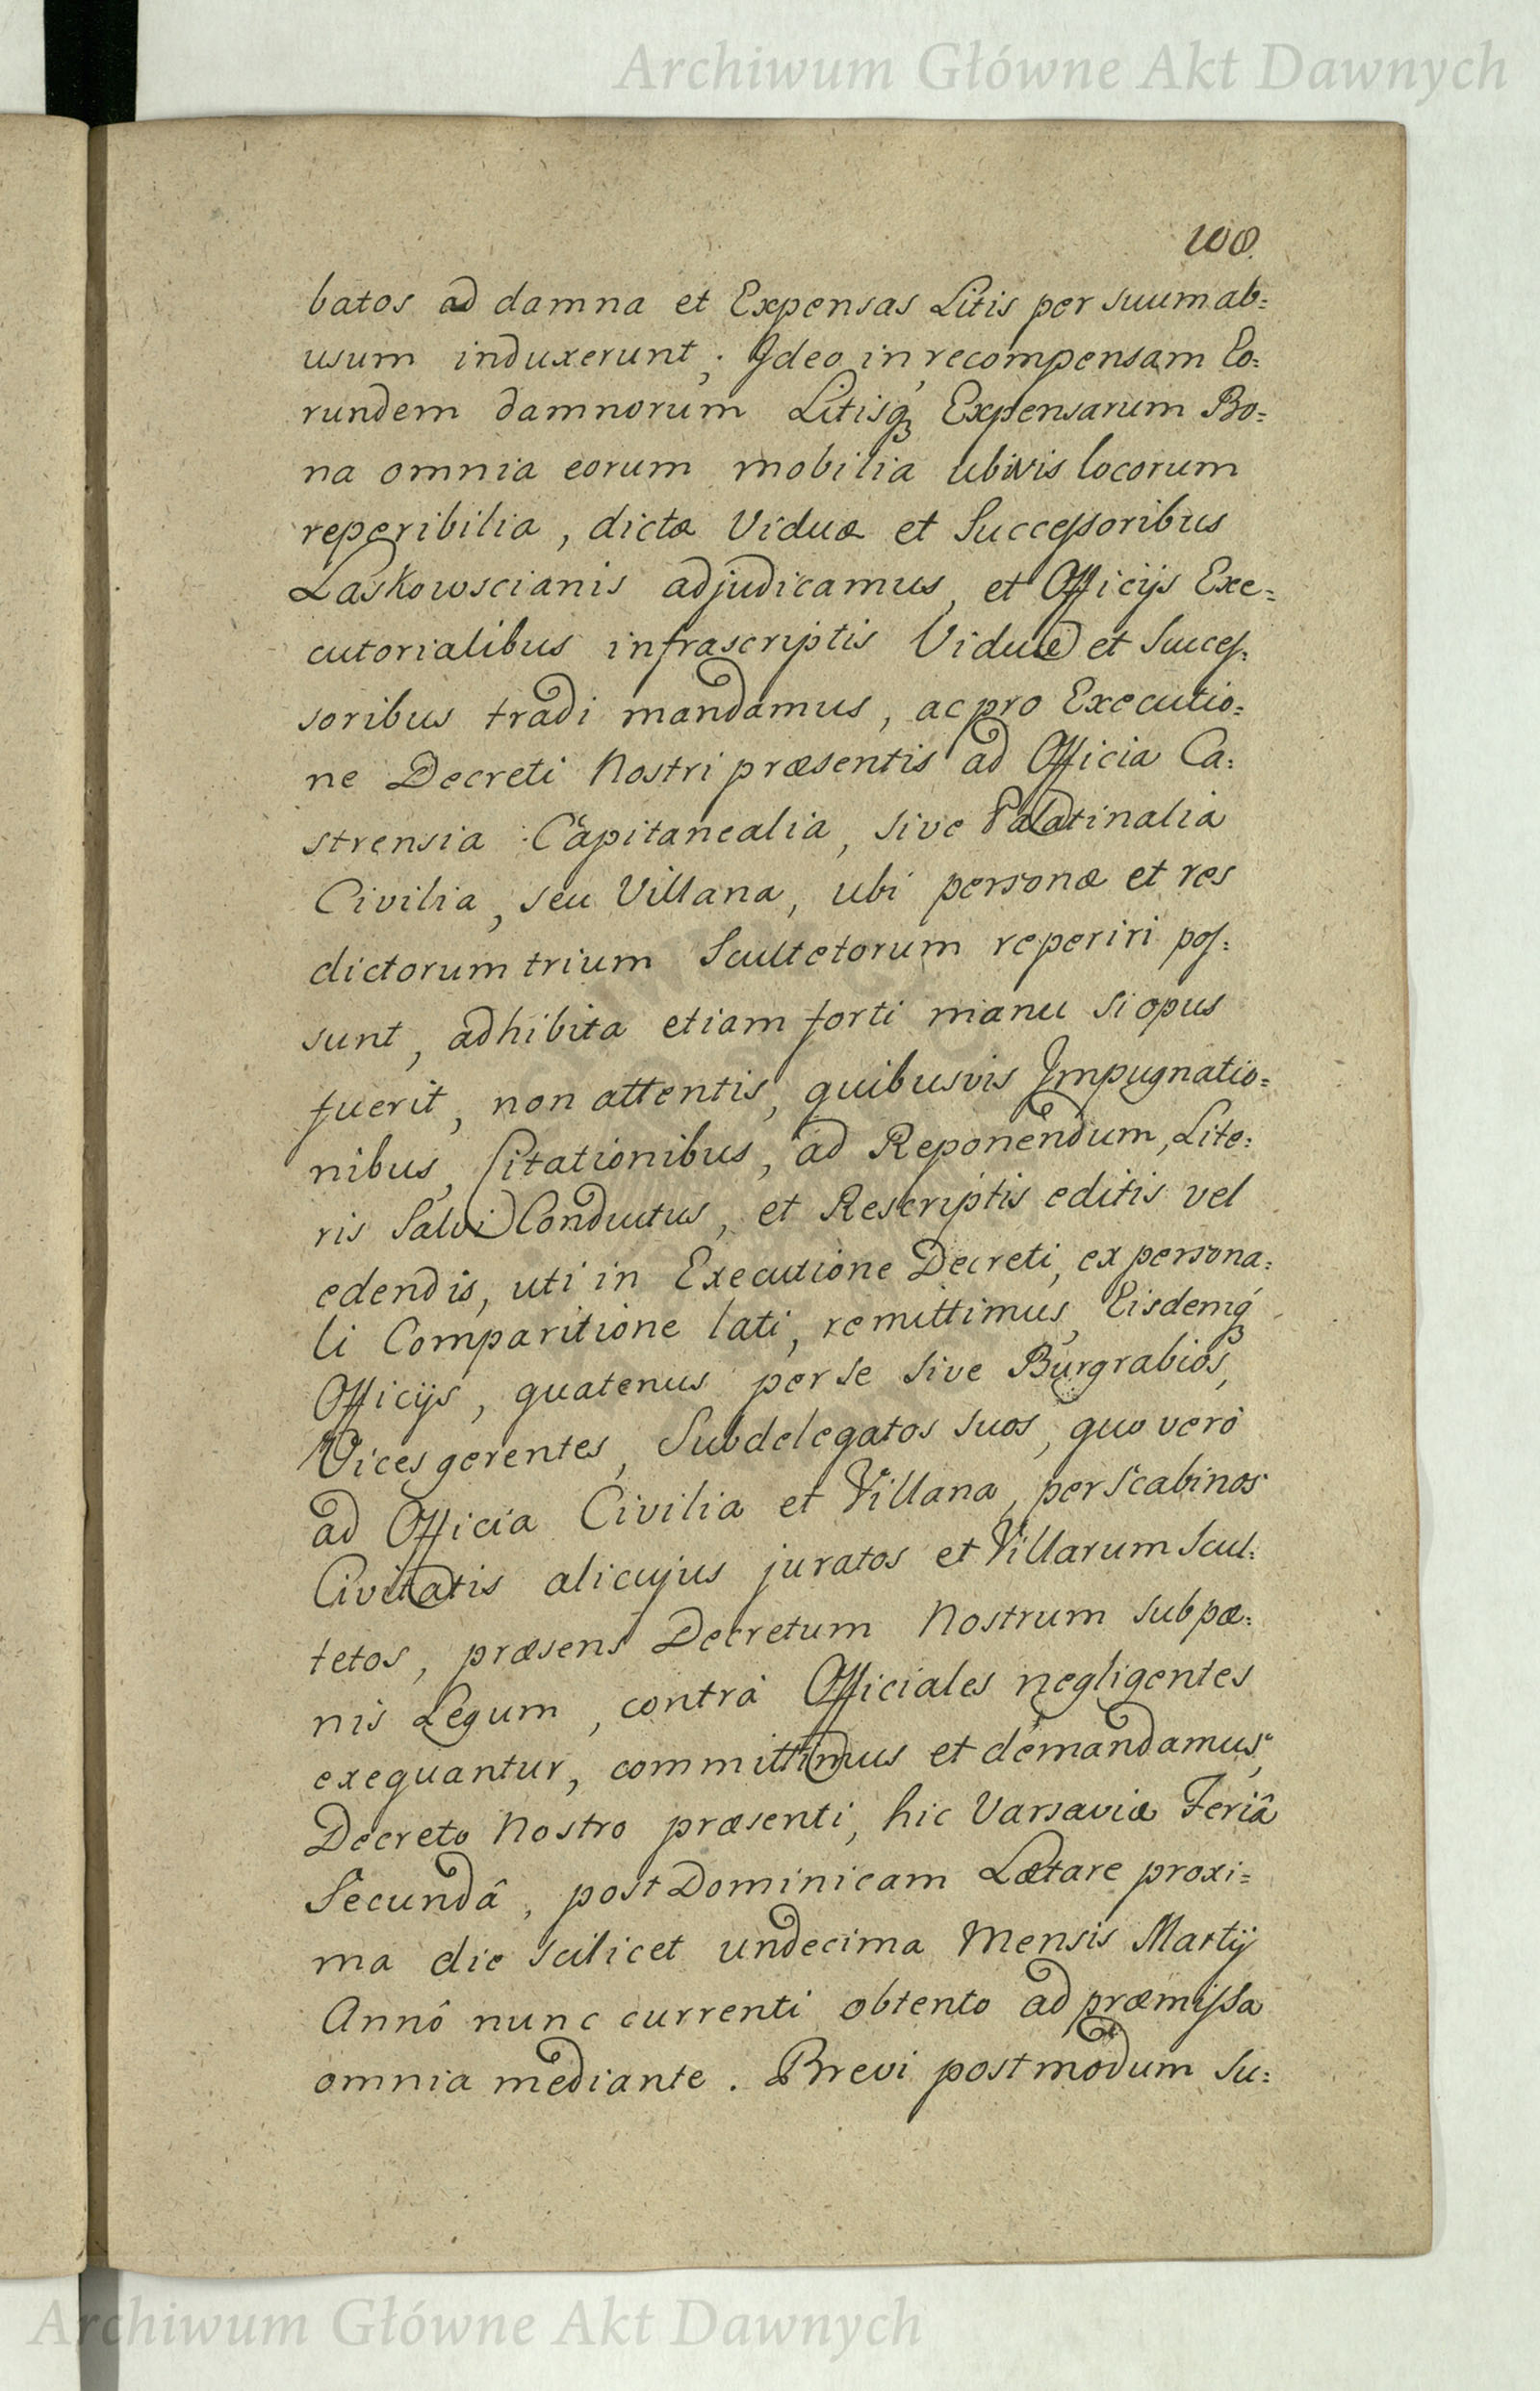 Archiwum Główne Akt Dawnych
108.
batos ad damna et Expensas Litis per suum ab=
usum induxerunt; Ideo in recompensam Eo=
rundem damnorum Litisq3 Expensarum Bo=
na omnia eorum mobilia ubivis locorum
reperibilia, dictæ Viduæ et Successoribus
Laskowscianis adjudicamus, et Officijs Exe=
cutorialibus infrascriptis Viduæ et Succes=
soribus tradi mandamus, ac pro Executio=
ne Decreti Nostri præsentis ad Officia Ca=
strensia Capitanealia, sive Palatinalia
Civilia, seu Villana, ubi personæ et res
dictorum trium Scultetorum reperiri pos=
sunt, adhibita etiam forti manu si opus
fuerit, non attentis, quibusvis Impugnatio=
nibus, Citationibus, ad Reponendum, Lite=
ris Salvi Conductus, et Rescriptis editis vel
edendis, uti in Executione Decreti, ex persona=
li Comparitione lati, remittimus, Eisdemq3
Officijs, quatenus per se sive Burgrabios,
Vices gerentes, Subdelegatos suos, quo verò
ad Officia Civilia et Villana, per Scabinos
Civitatis alicujus juratos et Villarum Scul=
tetos, præsens Decretum Nostrum sub pæ=
nis Legum, contrà Officiales negligentes
exequantur, committimus et demandamus,
Decreto Nostro præsenti, hic Varsaviæ Feriâ
Secundâ, post Dominicam Lætare proxi=
ma die scilicet undecima Mensis Martij
Annô nunc currenti obtento ad præmissa
omnia mediante. Brevi postmodum Su=
Archiwum Główne Akt Dawnych